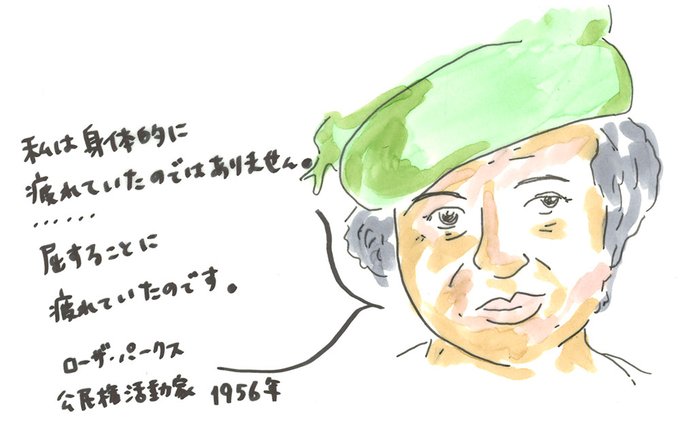 私は身体的に
疲れていたのではありません。
......
屈することに
疲れていたのです。
ローザ・パークス
公民権活動家 1956年